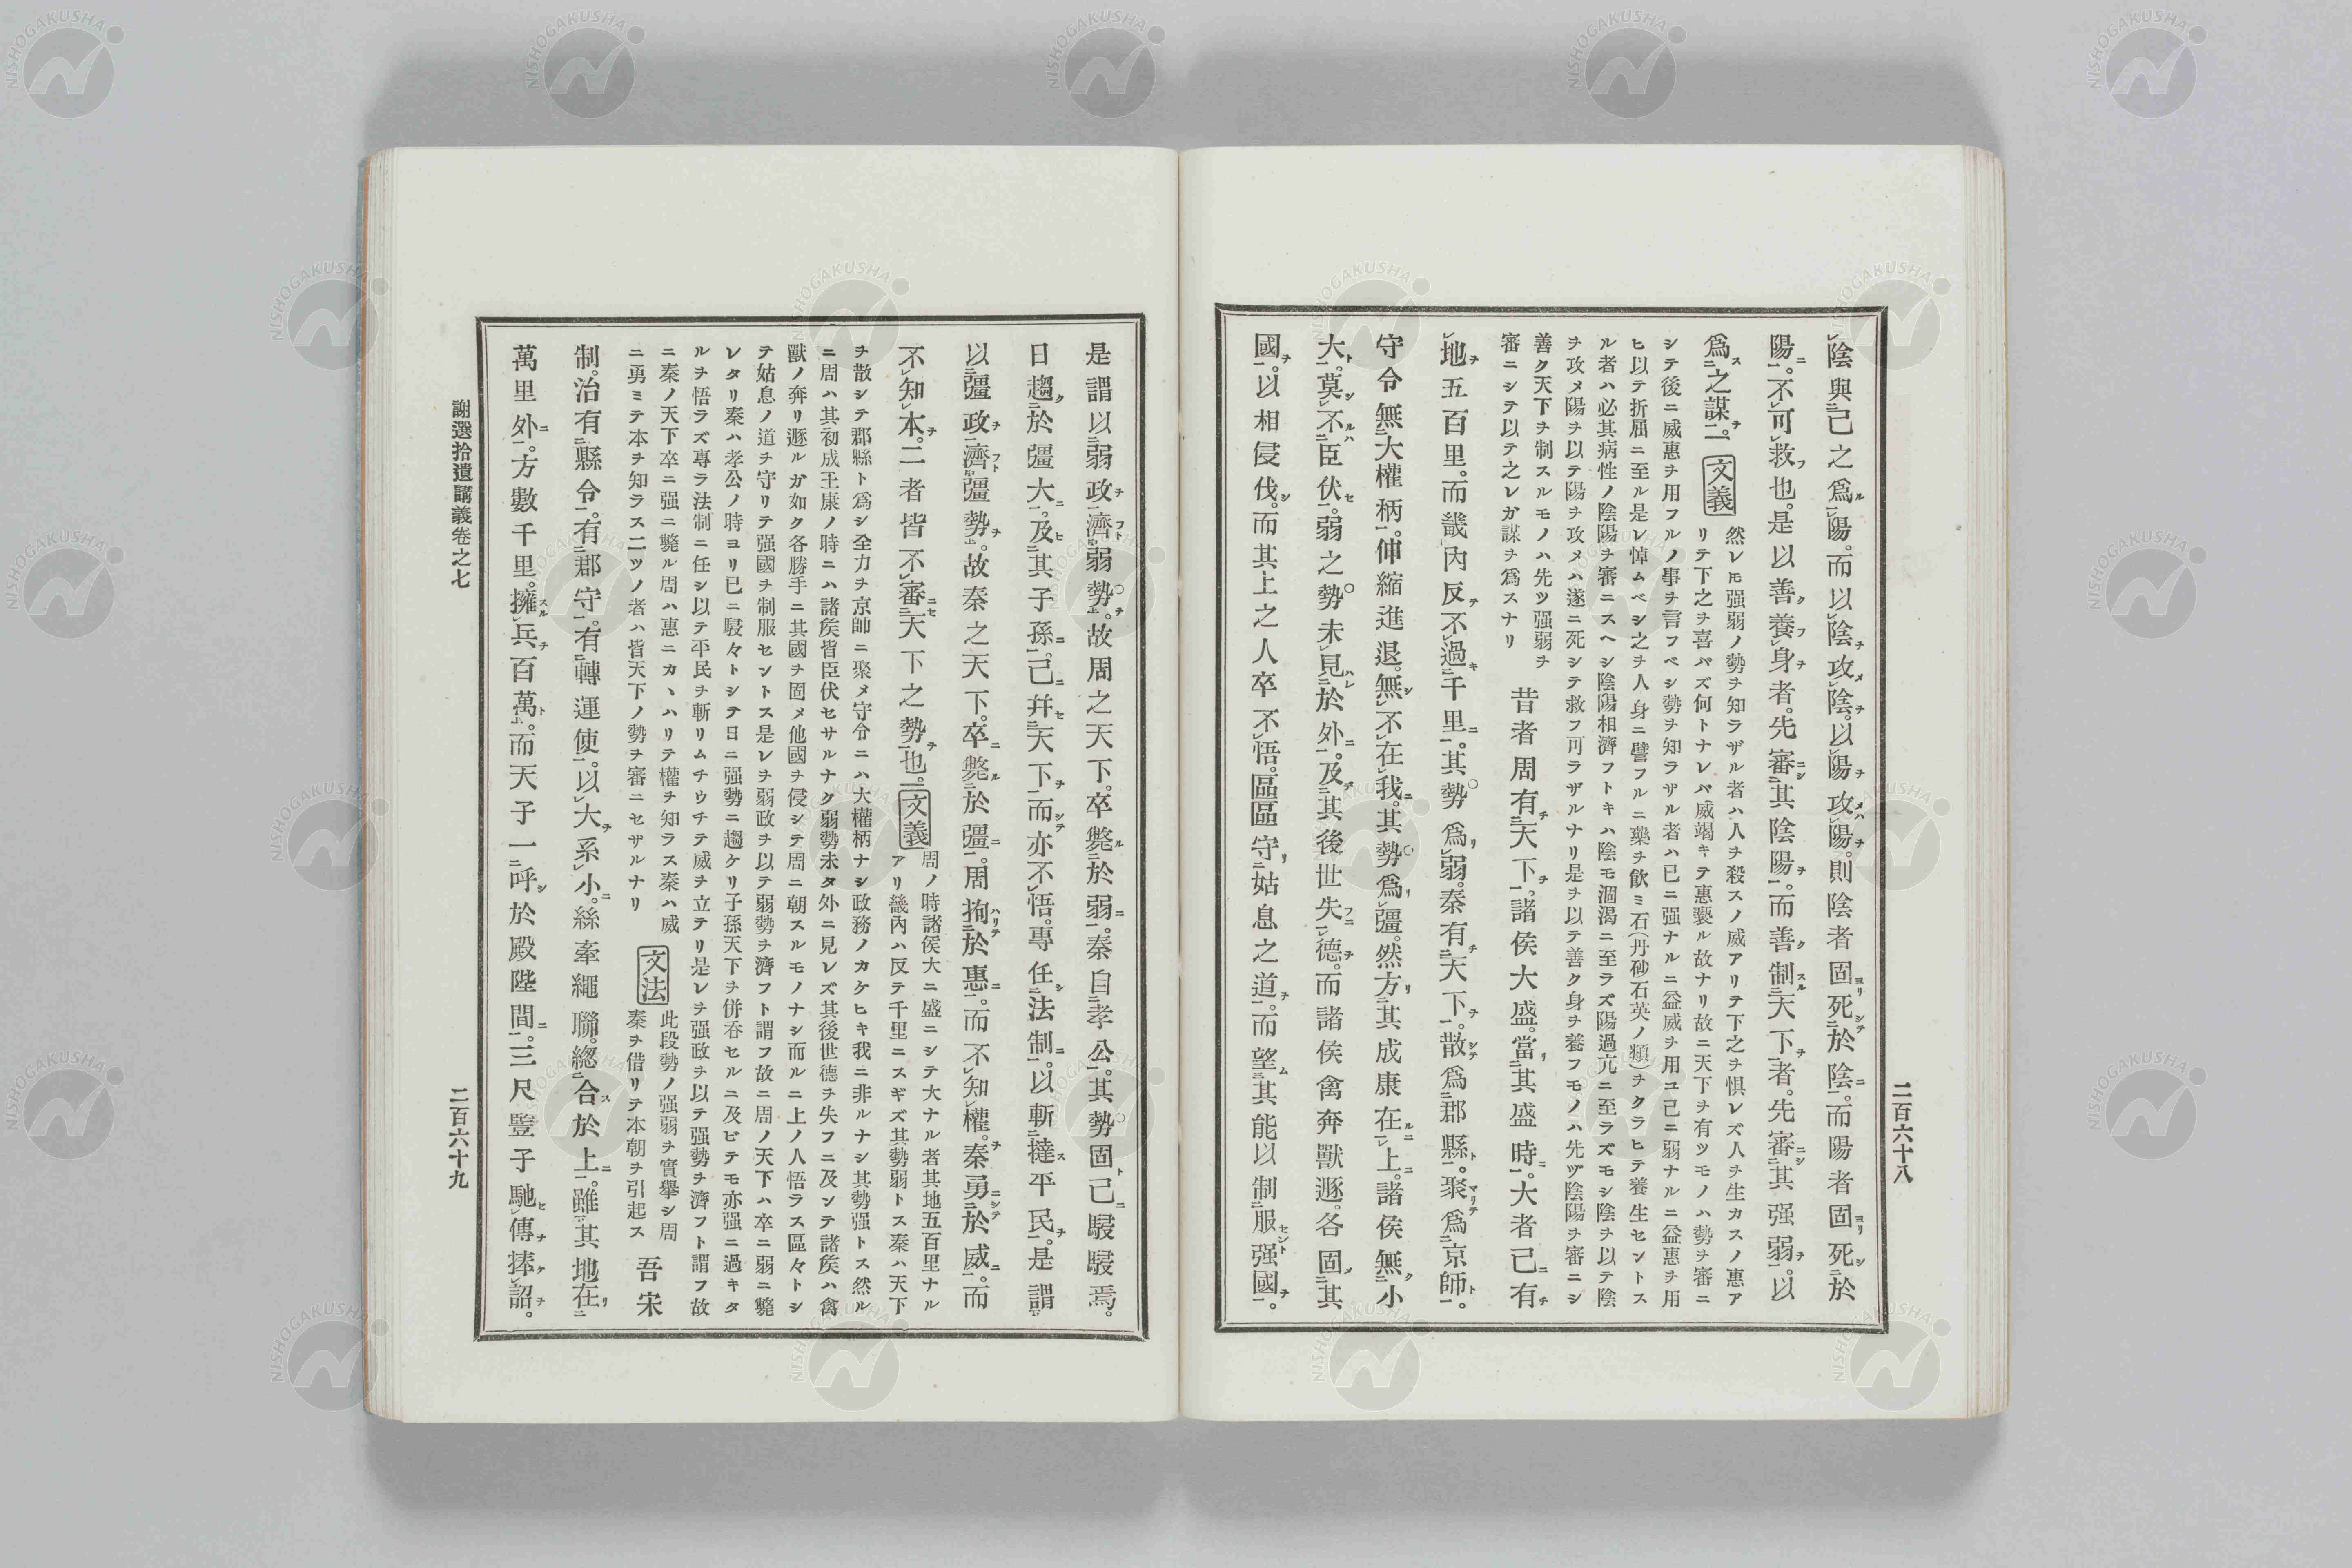 二百六十八
陰與己之爲陽。而以陰攻陰。以陽攻陽。則陰者固死於陰。而陽者固死於
陽。不可救也。是以善養身者。先審其陰陽。而善制天下者。先審其强弱。以
爲之謀。文義
然レ𪜈强弱ノ勢ヲ知ラザル者ハ人ヲ殺スノ威アリテ下之ヲ惧レズ人ヲ生カスノ惠ア
リテ下之ヲ喜バズ何トナレバ威竭キテ惠褻ル故ナリ故ニ天下ヲ有ツモノハ勢ヲ審ニ
シテ後ニ威惠ヲ用フルノ事ヲ言フベシ勢ヲ知ラザル者ハ已ニ强ナルニ益威ヲ用ユ己ニ弱ナルニ益惠ヲ用
ヒ以テ折屈ニ至ル是レ悼ムベシ之ヲ人身ニ譬フルニ藥ヲ飮ミ石(丹砂石英ノ類)ヲクラヒテ養生セントス
ル者ハ必其病性ノ陰陽ヲ審ニスヘシ陰陽相濟フトキハ陰モ涸渴ニ至ラズ陽過亢ニ至ラズモシ陰ヲ以テ陰
ヲ攻メ陽ヲ以テ陽ヲ攻メハ遂ニ死シテ救フ可ラザルナリ是ヲ以テ善ク身ヲ養フモノハ先ヅ陰陽ヲ審ニシ
善ク天下ヲ制スルモノハ先ツ强弱ヲ
審ニシテ以テ之レガ謀ヲ爲スナリ
昔者周有天下。諸侯大盛。當其盛時。大者己有
地五百里。而畿內反不過千里。其勢爲弱。秦有天下。散爲郡縣。聚爲京師。
守令無大權柄。伸縮進退。無不在我。其勢爲彊。然方其成康在上。諸侯無小
大。莫不臣伏。弱之勢未見於外。及其後世失德。而諸侯禽奔獸遯。各固其
國。以相侵伐。而其上之人卒不悟。區區守姑息之道。而望其能以制服强國。
是謂以弱政濟弱勢。故周之天下。卒斃於弱。秦自孝公。其勢固己駸駸焉。
日趨於彊大。及其子孫。己幷天下。而亦不悟。專任法制。以斬撻平民。是謂
以彊政濟彊勢。故秦之天下。卒斃於彊。周拘於惠。而不知權。秦勇於威。而
不知本。二者皆不審天下之勢也。文義
周ノ時諸侯大ニ盛ニシテ大ナル者其地五百里ナル
アリ畿內ハ反テ千里ニスギズ其勢弱トス秦ハ天下
ヲ散シテ郡縣ト爲シ全力ヲ京師ニ聚メ守令ニハ大權柄ナシ政務ノカケヒキ我ニ非ルナシ其勢强トス然ル
ニ周ハ其初成王康ノ時ニハ諸矦皆臣伏セサルナク弱勢未タ外ニ見レズ其後世德ヲ失フニ及ンテ諸矦ハ禽
獸ノ奔リ遯ルガ如ク各勝手ニ其國ヲ固メ他國ヲ侵シテ周ニ朝スルモノナシ而ルニ上ノ人悟ラス區々トシ
テ姑息ノ道ヲ守リテ强國ヲ制服セントス是レヲ弱政ヲ以テ弱勢ヲ濟フト謂フ故ニ周ノ天下ハ卒ニ弱ニ斃
レタリ秦ハ孝公ノ時ヨリ已ニ駸々トシテ日ニ强勢ニ趨ケリ子孫天下ヲ併呑セルニ及ビテモ亦强ニ過キタ
ルヲ悟ラズ專ラ法制ニ任シ以テ平民ヲ斬リムチウチテ威ヲ立テリ是レヲ强政ヲ以テ强勢ヲ濟フト謂フ故
ニ秦ノ天下卒ニ强ニ斃ル周ハ惠ニカヽハリテ權ヲ知ラス秦ハ威
ニ勇ミテ本ヲ知ラス二ツノ者ハ皆天下ノ勢ヲ審ニセザルナリ
文法
此段勢ノ强弱ヲ實擧シ周
秦ヲ借リテ本朝ヲ引起ス
吾宋
制。治有縣令。有郡守。有轉運使。以大系小。絲牽繩聯。總合於上。雖其地在
萬里外。方數千里。擁兵百萬。而天子一呼於殿陛間。三尺豎子馳傳捧詔。
謝選拾遺講義卷之七
二百六十九